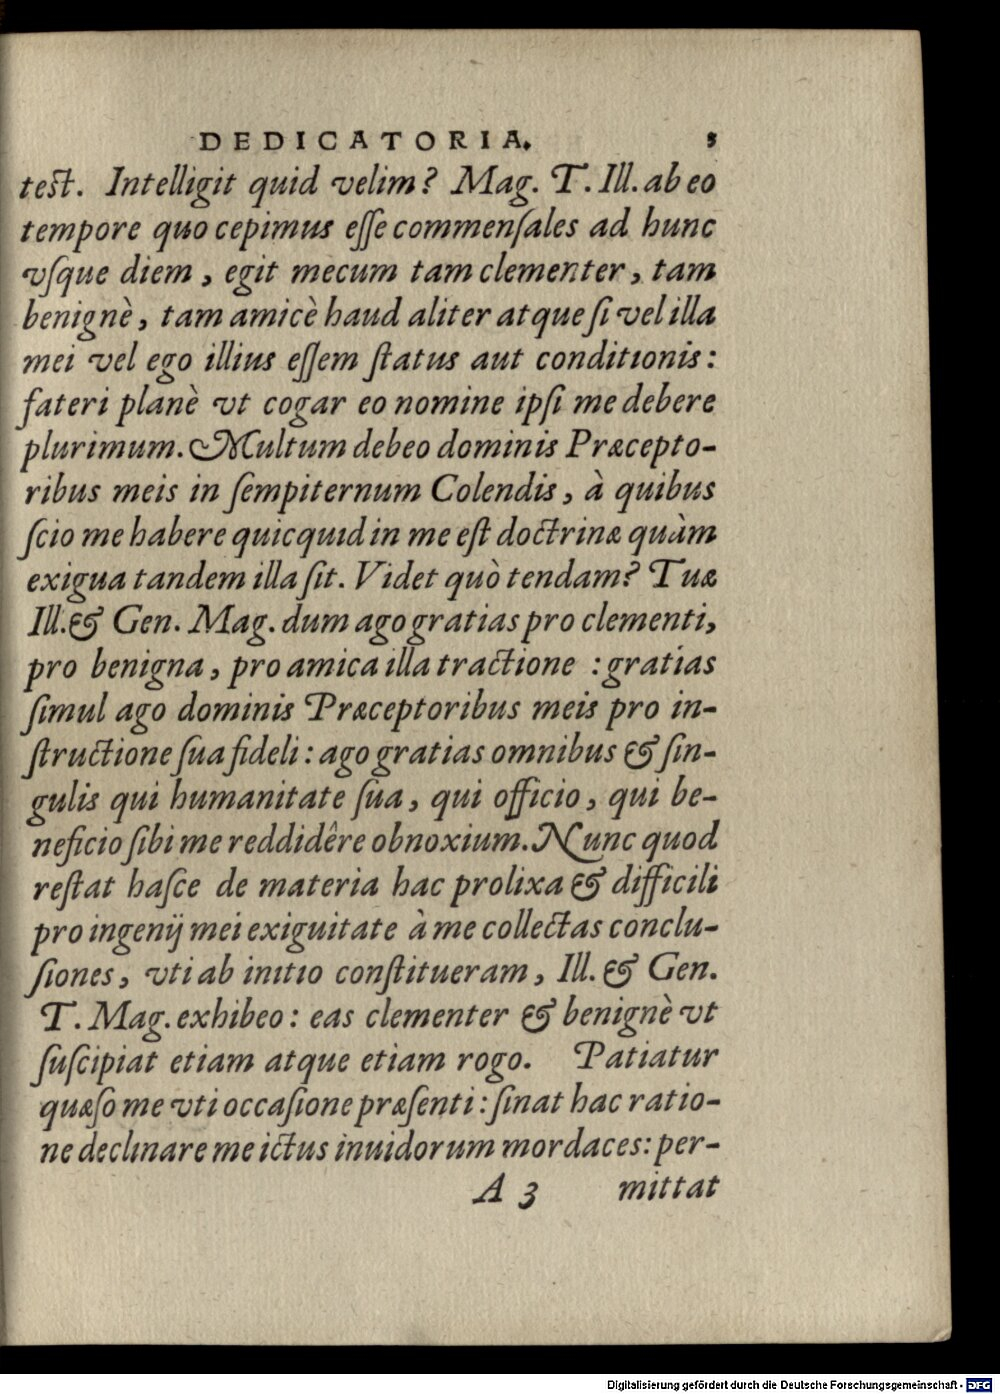 DEDICATORIA. 5
test. Intelligit quid velim? Mag. T. Ill. ab eo
tempore quo cepimus eſſe commenſales ad hunc
vſque diem, egit mecum tam clementer, tam
benignè, tam amicè haud aliter atque ſi vel illa
mei vel ego illius eſſem ſtatus aut conditionis:
fateri planè vt cogar eo nomine ipſi me debere
plurimum. Multum debeo dominis Præcepto-
ribus meis in ſempiternum Colendis, à quibus
ſcio me habere quicquid in me eſt doctrinæ quàm
exigua tandem illa ſit. Videt quò tendam? Tuæ
Ill. & Gen. Mag. dum ago gratias pro clementi,
pro benigna, pro amica illa tractione : gratias
ſimul ago dominis Præceptoribus meis pro in-
ſtructione ſua fideli: ago gratias omnibus & ſin-
gulis qui humanitate ſua, qui officio, qui be-
neficio ſibi me reddidêre obnoxium. Nunc quod
reſtat haſce de materia hac prolixa & difficili
pro ingenij mei exiguitate à me collectas conclu-
ſiones, vti ab initio conſtitueram, Ill. & Gen.
T. Mag. exhibeo: eas clementer & benignè vt
ſuſcipiat etiam atque etiam rogo. Patiatur
quæſo me vti occaſione præſenti: ſinat hac ratio-
ne declinare me ictus inuidorum mordaces: per-
A 3 mittat
Digitalisierung gefördert durch die Deutsche Forschungsgemeinschaft - DFG